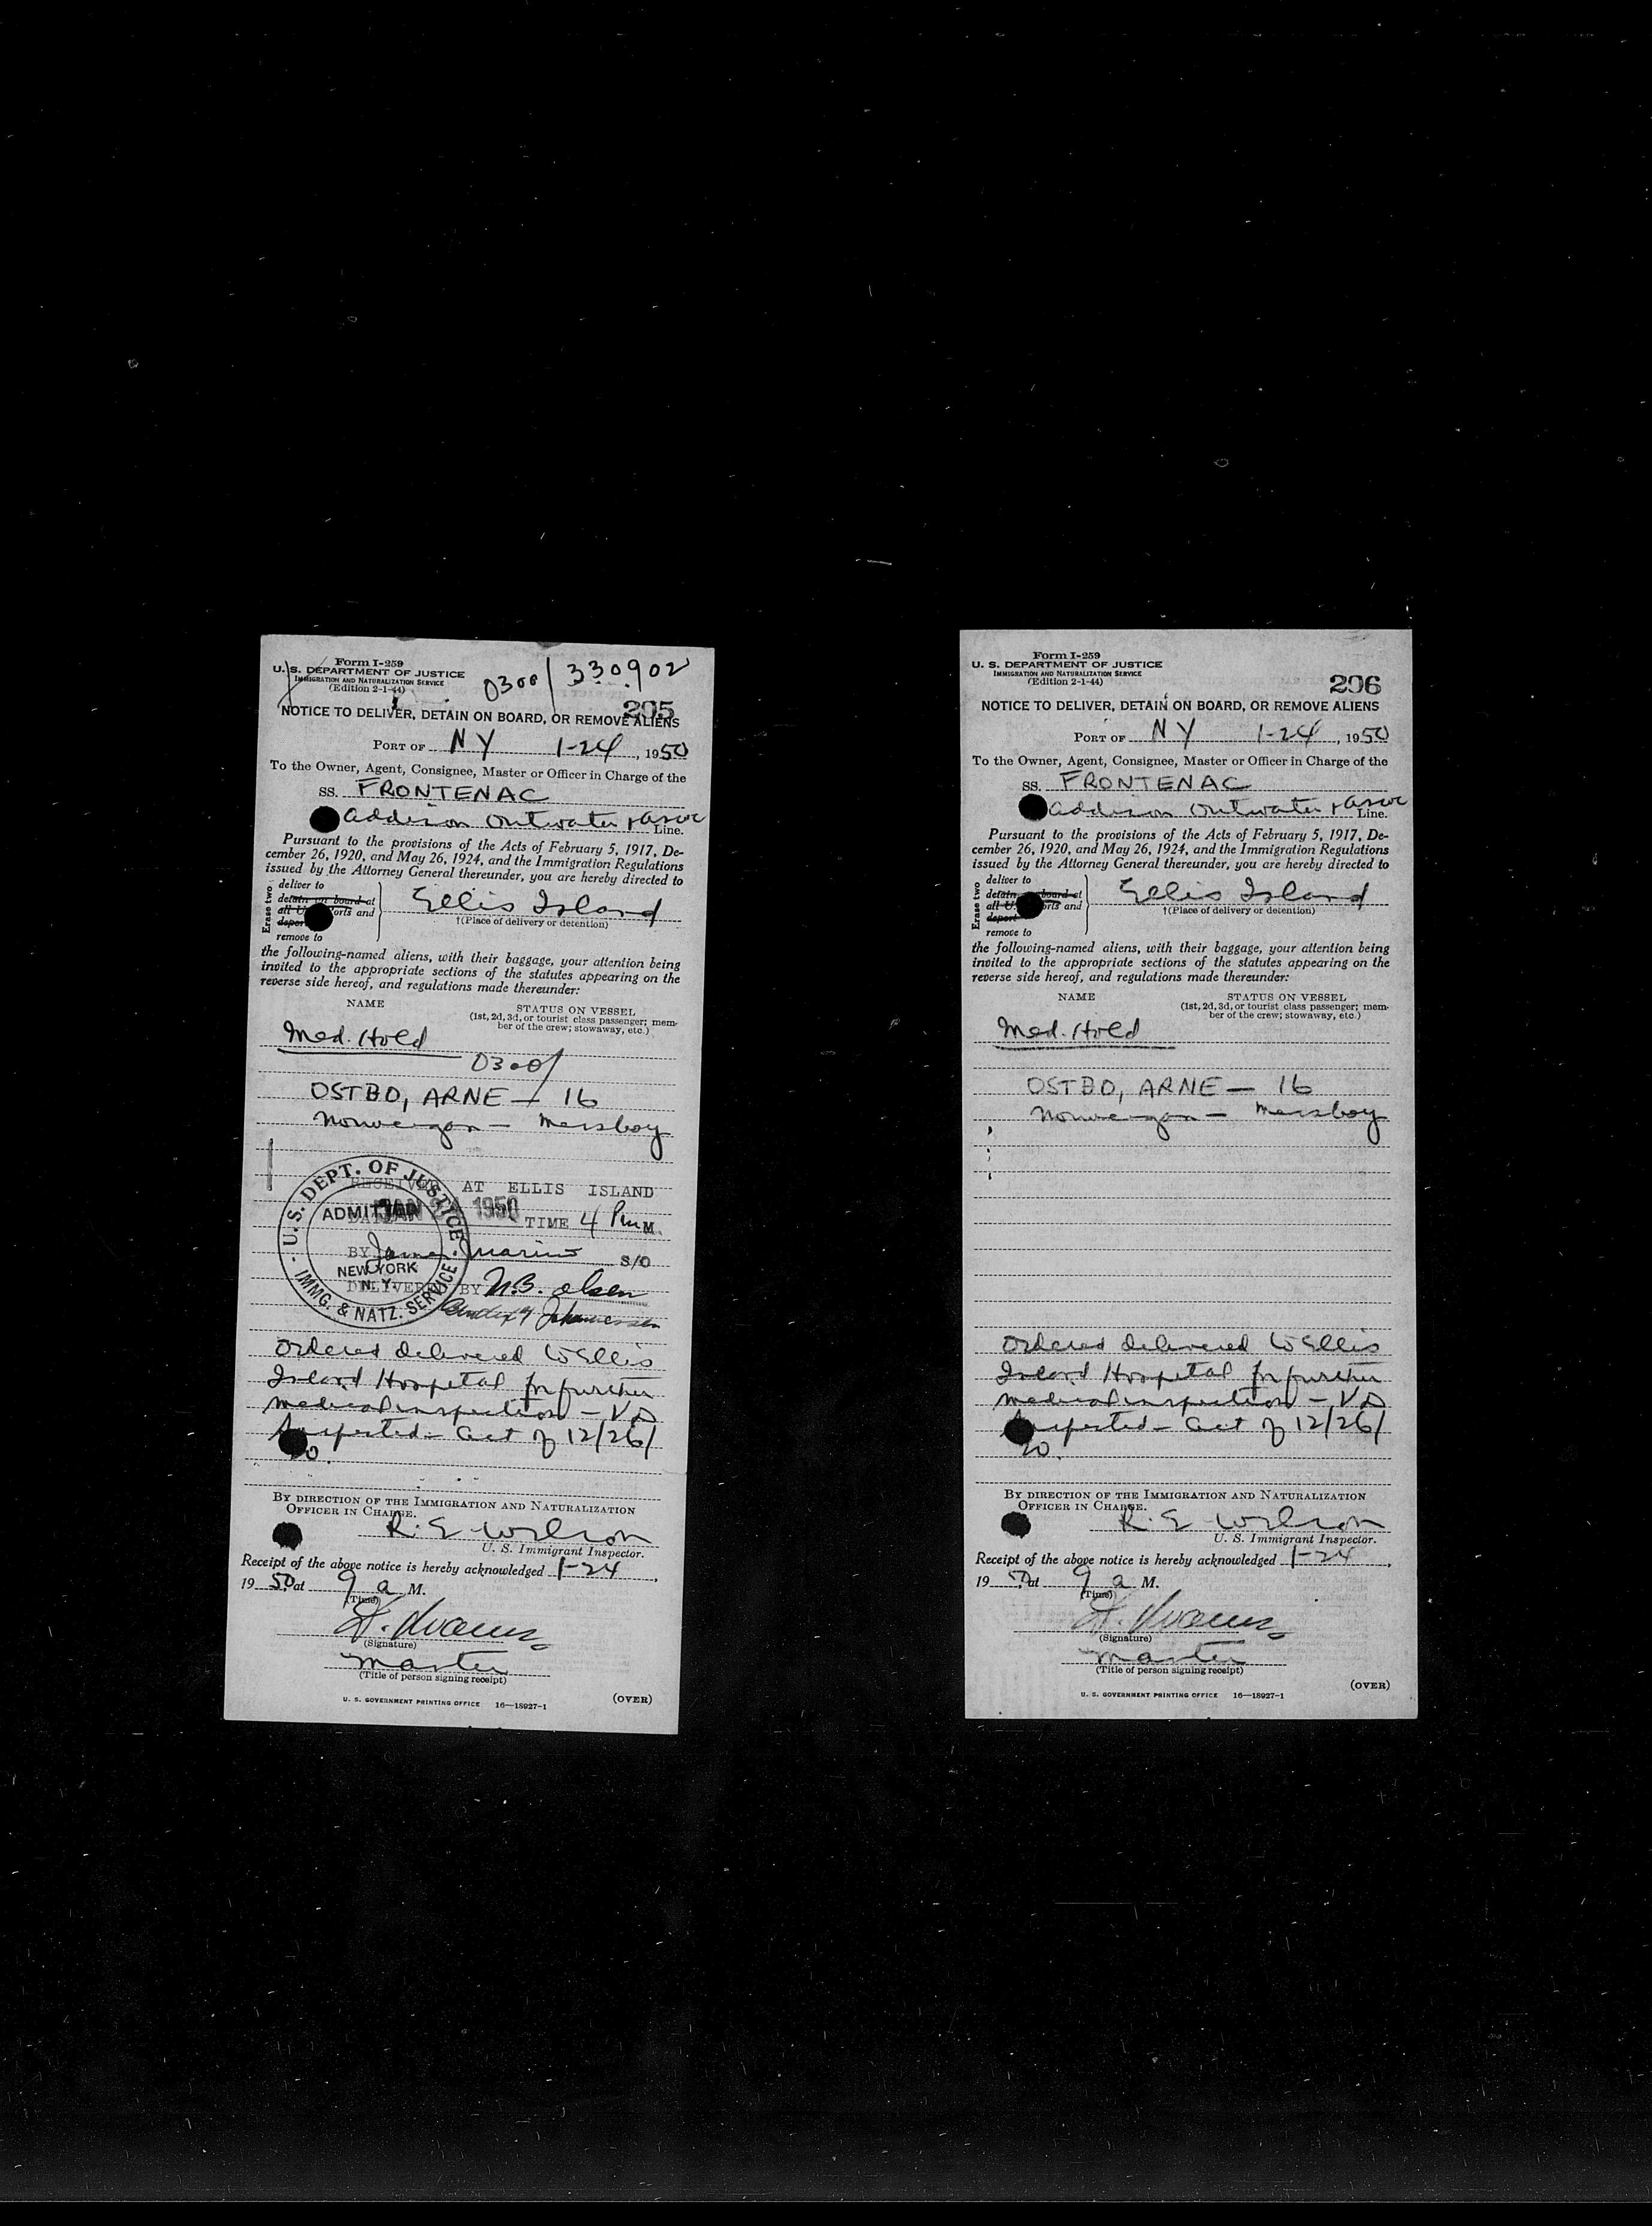 Form I-259
U. S. DEPARTMENT OF JUSTICE
IMMIGRATION AND NATURALIZATION SERVICE
(Edition 2-1-44)
0300/330902
205
NOTICE TO DELIVER, DETAIN ON BOARD, OR REMOVE ALIENS
PORT OF NY 1-24, 1950
To the Owner, Agent, Consignee, Master or Officer in Charge of the
SS. FRONTENAC
Addison Outwater & Assoc Line.
Pursuant to the provisions of the Acts of February 5, 1917, De-
cember 26, 1920, and May 26, 1924, and the Immigration Regulations
issued by the Attorney General thereunder, you are hereby directed to
Erase two
deliver to
detain on board at
all U. orts and
depor
remove to
Ellis Island
†(Place of delivery or detention)
the following-named aliens, with their baggage, your attention being
invited to the appropriate sections of the statutes appearing on the
reverse side hereof, and regulations made thereunder:
NAME
STATUS ON VESSEL
(1st, 2d, 3d, or tourist class passenger; mem-
ber of the crew; stowaway, etc.)
Med. Hold
0300/
OSTBO, ARNE — 16
Norwegian — Messboy
RECEIVED AT ELLIS ISLAND
DATE JAN 24 1950 TIME 4 PmM.
BY James Marino S/O
DELIVERED BY N.B. Olsen
Johannessen
U.S. DEPT. OF JUSTICE
ADMITTED
NEW YORK
N.Y.
IMMG. & NATZ. SERVICE
Ordered delivered to Ellis
Island Hospital for further
medical inspection — VD
Suspected — Act of 12/26/
20.
BY DIRECTION OF THE IMMIGRATION AND NATURALIZATION
OFFICER IN CHARGE.
R. E. Wilson
U. S. Immigrant Inspector.
Receipt of the above notice is hereby acknowledged 1-24,
19 50, at 9 a M.
(Time)
(Signature)
Master
(Title of person signing receipt)
U. S. GOVERNMENT PRINTING OFFICE 16—18927-1
(OVER)
Form I-259
U. S. DEPARTMENT OF JUSTICE
IMMIGRATION AND NATURALIZATION SERVICE
(Edition 2-1-44)
206
NOTICE TO DELIVER, DETAIN ON BOARD, OR REMOVE ALIENS
PORT OF NY 1-24, 1950
To the Owner, Agent, Consignee, Master or Officer in Charge of the
SS. FRONTENAC
Addison Outwater & Assoc Line.
Pursuant to the provisions of the Acts of February 5, 1917, De-
cember 26, 1920, and May 26, 1924, and the Immigration Regulations
issued by the Attorney General thereunder, you are hereby directed to
Erase two
deliver to
detain on board at
all U. orts and
deport
remove to
Ellis Island
†(Place of delivery or detention)
the following-named aliens, with their baggage, your attention being
invited to the appropriate sections of the statutes appearing on the
reverse side hereof, and regulations made thereunder:
NAME
STATUS ON VESSEL
(1st, 2d, 3d, or tourist class passenger; mem-
ber of the crew; stowaway, etc.)
Med. Hold
OSTBO, ARNE — 16
Norwegian — Messboy
Ordered delivered to Ellis
Island Hospital for further
medical inspection — VD
Suspected — Act of 12/26/
20.
BY DIRECTION OF THE IMMIGRATION AND NATURALIZATION
OFFICER IN CHARGE.
R. E. Wilson
U. S. Immigrant Inspector.
Receipt of the above notice is hereby acknowledged 1-24,
19 50, at 9 a M.
(Time)
(Signature)
Master
(Title of person signing receipt)
U. S. GOVERNMENT PRINTING OFFICE 16—18927-1
(OVER)